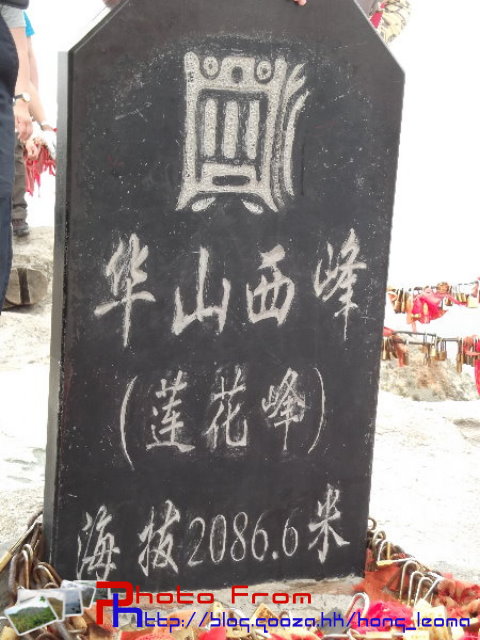 华山西峰
(莲花峰)
海拔2086.6米
Photo From
Http://blog.qooza.hk/hong_leoma